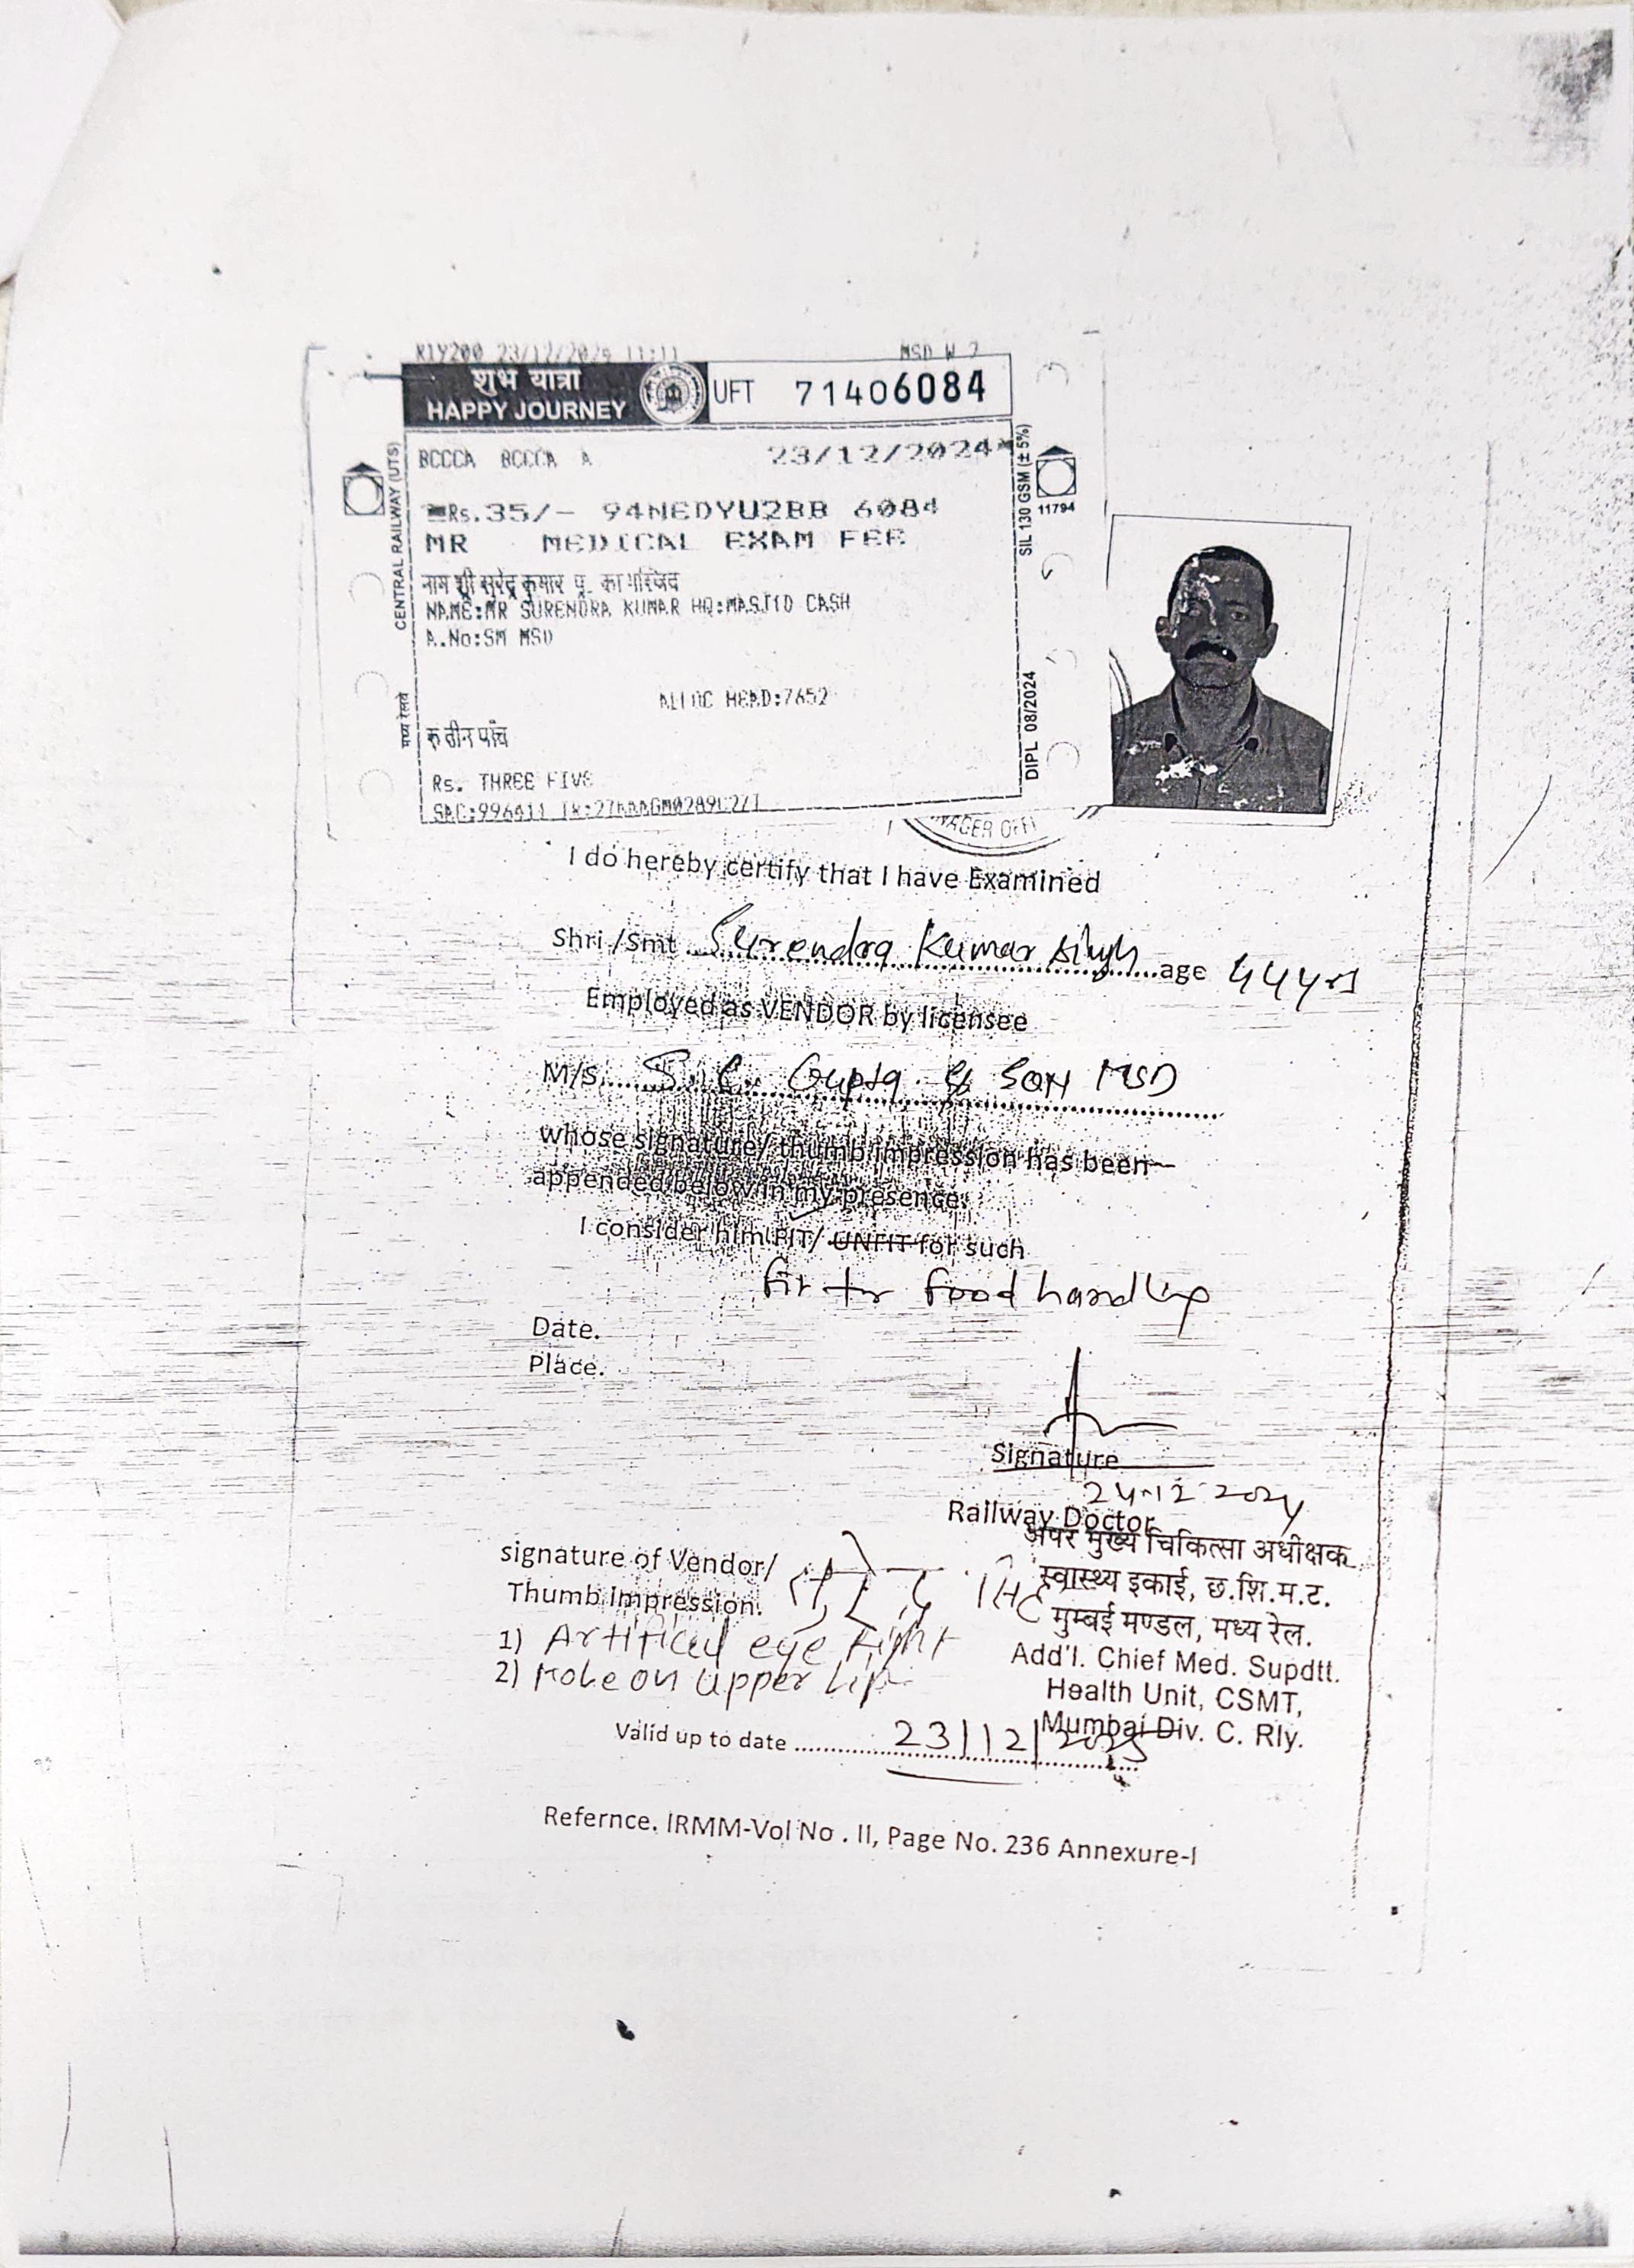 R19200 23/12/2024 11:11 MSD W 2
शुभ यात्रा
HAPPY JOURNEY
UFT 71406084
BCCCA BCCCA A 23/12/2024
Rs.35/- 94MEDYU2BB 6084
MR MEDICAL EXAM FEE
नाम श्री सुरेंद्र कुमार
NAME:MR SURENDRA KUMAR HQ:MASJID CASH
A.No:SM MSD
ALLOC HEAD:7652
रु तीन पाँच
Rs. THREE FIVE
SAC:996411
CENTRAL RAILWAY (UTS)
मध्य रेलवे
SIL 130 GSM (± 5%)
11794
DIPL 08/2024
I do hereby certify that I have Examined
Shri /Smt Surendra Kumar Singh age 44 yrs
Employed as VENDOR by licensee
M/S. S. C. Gupta & Son MSD
whose signature/ thumb impression has been
appended below in my presence.
I consider him FIT/ UNFIT for such
fit for food handling
Date.
Place.
Signature
24.12.2024
Railway Doctor
अपर मुख्य चिकित्सा अधीक्षक
स्वास्थ्य इकाई, छ.शि.म.ट.
मुम्बई मण्डल, मध्य रेल.
Add'l. Chief Med. Supdtt.
Health Unit, CSMT,
Mumbai Div. C. Rly.
signature of Vendor/
Thumb Impression.
1) Artificial eye Right
2) Mole on Upper Lip
Valid up to date 23/12/2025
Refernce. IRMM-Vol No . II, Page No. 236 Annexure-I